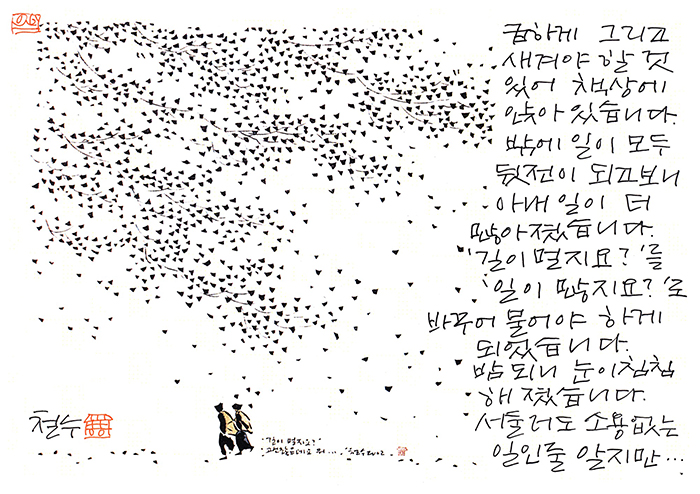 급하게 그리고
새겨야 할 것
있어 책상에
앉아 있습니다.
밖에 일이 모두
뒷전이 되고보니
아내 일이 더
많아졌습니다.
'길이 멀지요?'를
'일이 많지요?'로
바꾸어 물어야 하게
되었습니다.
밤 되니 눈이침침
해 졌습니다.
서둘러도 소용없는
일인줄 알지만…
철수
"길이 멀지요?"
뭐 …